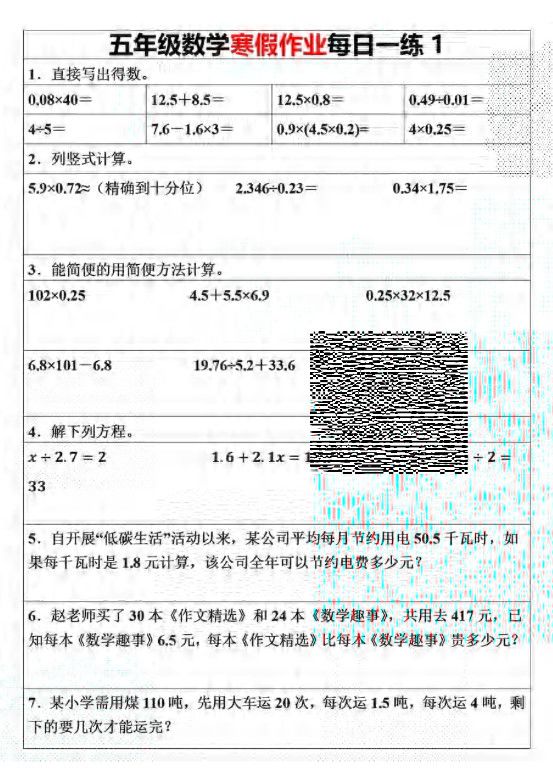 五年级数学寒假作业每日一练 1
1．直接写出得数。
0.08×40＝ 12.5＋8.5＝ 12.5×0.8＝ 0.49÷0.01＝
4÷5＝ 7.6－1.6×3＝ 0.9×(4.5×0.2)= 4×0.25＝
2．列竖式计算。
5.9×0.72≈（精确到十分位） 2.346÷0.23＝ 0.34×1.75＝
3．能简便的用简便方法计算。
102×0.25 4.5＋5.5×6.9 0.25×32×12.5
6.8×101－6.8 19.76÷5.2＋33.6
4．解下列方程。
x ÷ 2.7 = 2 1.6 + 2.1x = ÷ 2 =
33
5．自开展“低碳生活”活动以来，某公司平均每月节约用电 50.5 千瓦时，如
果每千瓦时是 1.8 元计算，该公司全年可以节约电费多少元？
6．赵老师买了 30 本《作文精选》和 24 本《数学趣事》，共用去 417 元，已
知每本《数学趣事》6.5 元，每本《作文精选》比每本《数学趣事》贵多少元？
7．某小学需用煤 110 吨，先用大车运 20 次，每次运 1.5 吨，每次运 4 吨，剩
下的要几次才能运完？